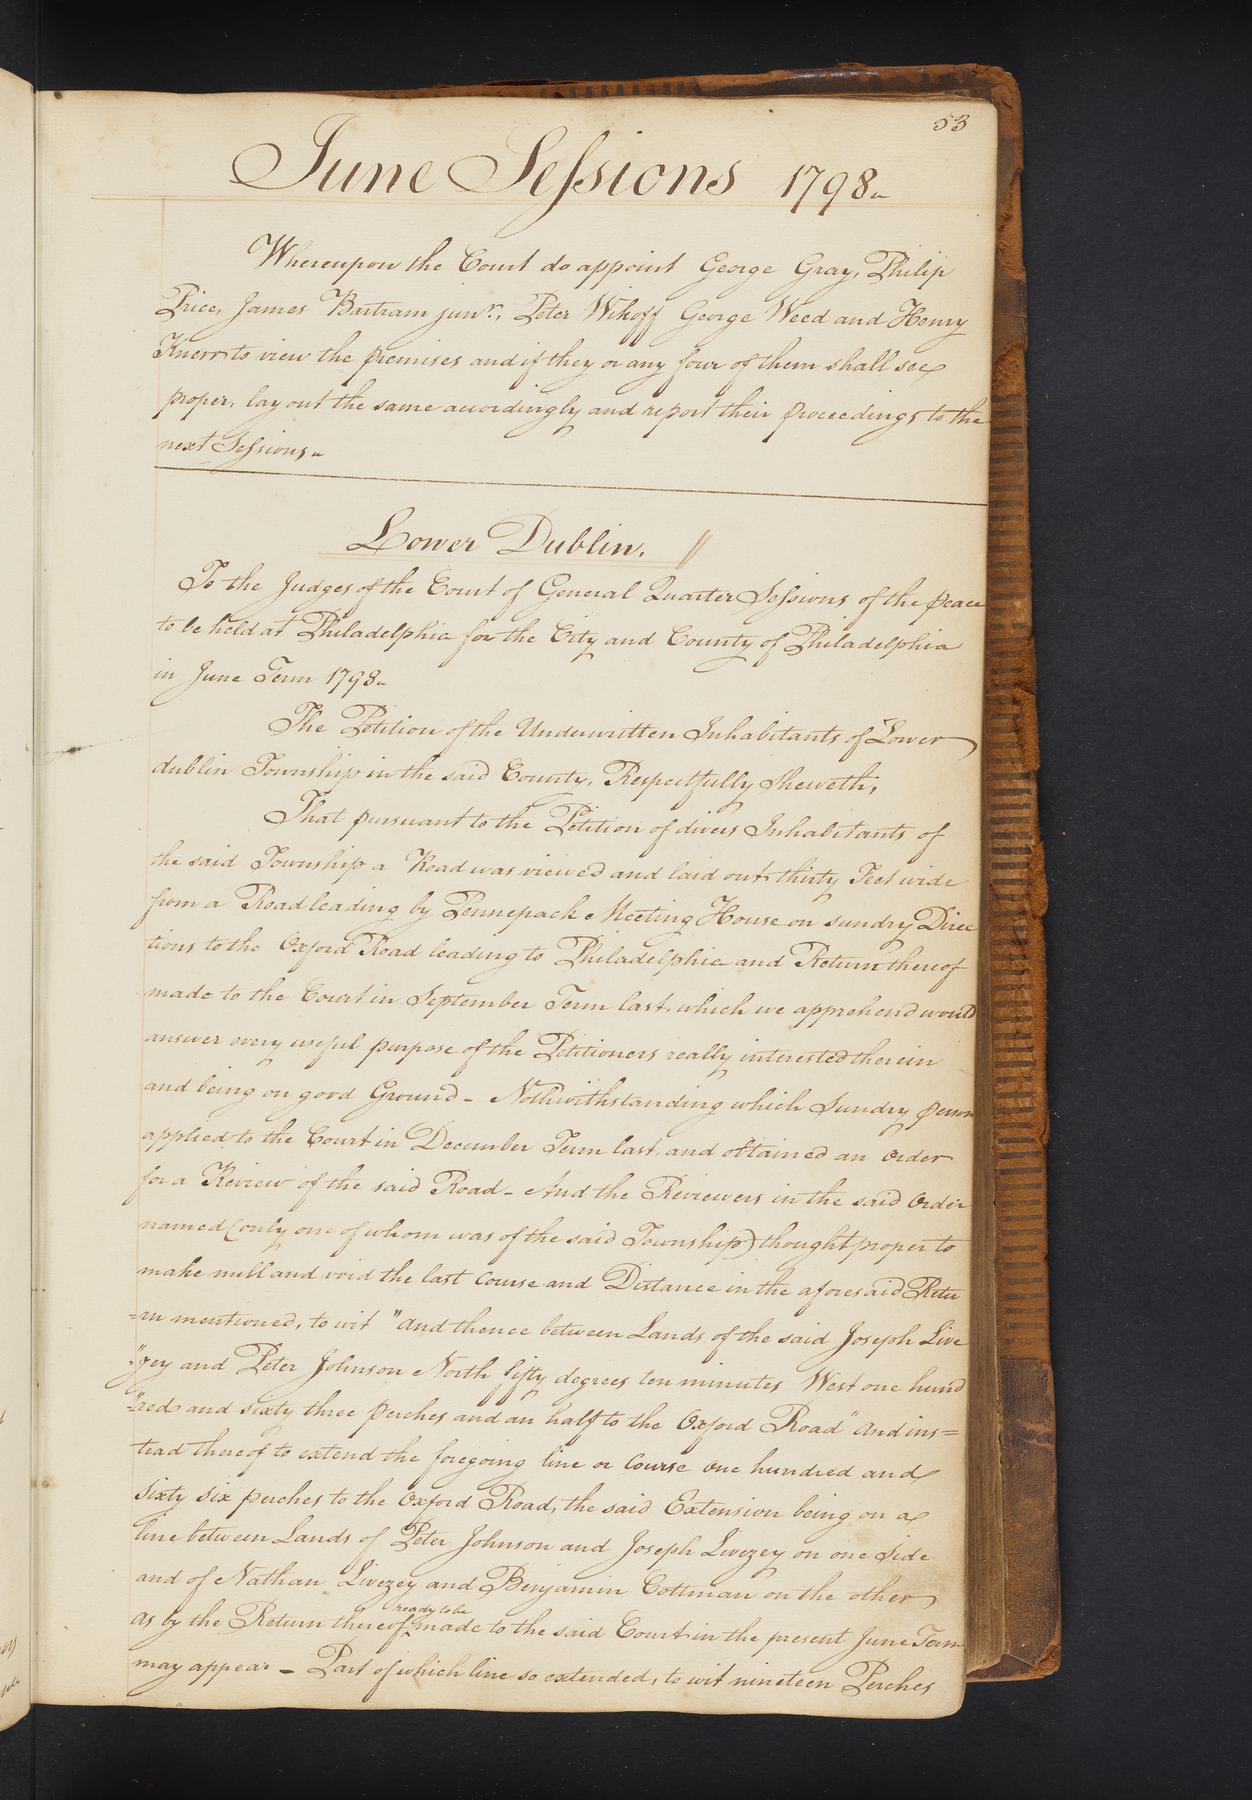 53
June Sessions 1798
Whereupon the Court do appoint George Gray, Philip
Price, James Bartram junr., Peter Wikoff George Weed and Henry
Knerr to view the premises and if they or any four of them shall see
proper, lay out the same accordingly and report their proceedings to the
next Sessions
Lower Dublin. //
To the Judges of the Court of General Quarter Sessions of the peace
to be held at Philadelphia for the City and County of Philadelphia
in June Term 1798
The Petition of the Underwritten Inhabitants of Lower
dublin Township in the said County, Respectfully Sheweth,
That pursuant to the Petition of divers Inhabitants of
the said Township a Road was viewed and laid out thirty Feet wide
from a Road leading by Pennepack Meeting House on sundry Direc
tions to the Oxford Road leading to Philadelphia and Return thereof
made to the Court in September Term last, which we apprehend would
answer every useful purpose of the Petitioners really interested therein
and being on good Ground - Nothwithstanding which Sundry person
applied to the Court in December Term last, and obtained an order
for a Review of the said Road - And the Reviewers in the said Order
named (only one of whom was of the said Township) thought proper to
make null and void the last Course and Distance in the aforesaid Retu
=rn mentioned, to wit "And thence between Lands of the said Joseph Live
="zey and Peter Johnson North fifty degrees ten minutes West one hund
="red and sixty three perches and an half to the Oxford Road" And ins=
tead thereof to extend the foregoing line or Course One hundred and
sixty six perches to the Oxford Road, the said Extension being on a
line between Lands of Peter Johnson and Joseph Livezey on one side
and of Nathan Livezey and Benjamin Cottman on the other
ready to be
as by the Return thereof ^ made to the said Court in the present June Term
may appear - Part of which line so extended, to wit nineteen Perches